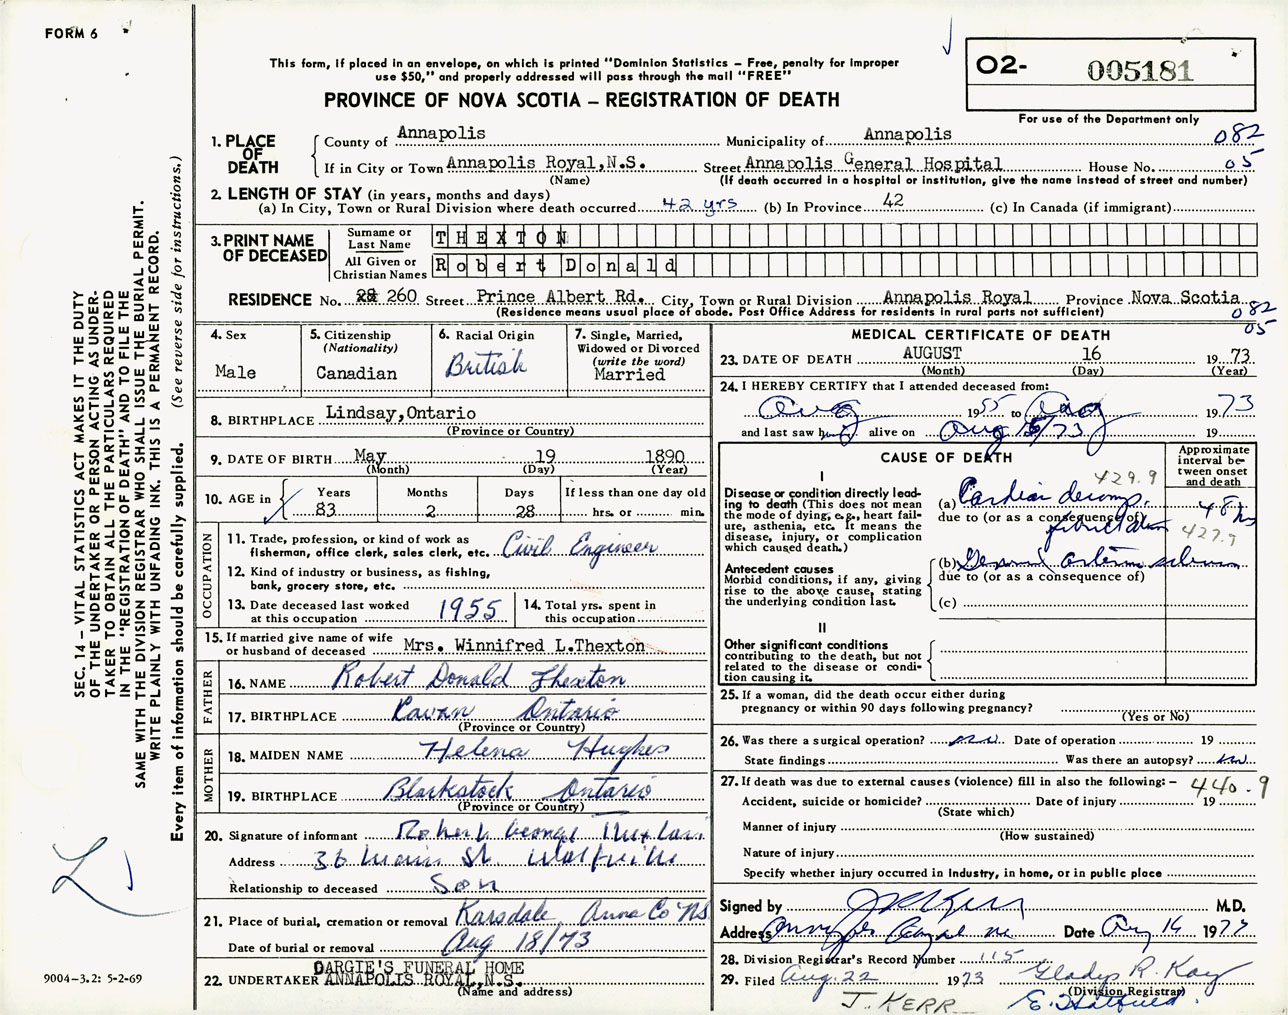 FORM 6
This form, if placed in an envelope, on which is printed "Dominion Statistics – Free, penalty for improper
use $50," and properly addressed will pass through the mail "FREE"
PROVINCE OF NOVA SCOTIA – REGISTRATION OF DEATH
O2- 005181
For use of the Department only
SEC. 14 – VITAL STATISTICS ACT MAKES IT THE DUTY
OF THE UNDERTAKER OR PERSON ACTING AS UNDER-
TAKER TO OBTAIN ALL THE PARTICULARS REQUIRED
IN THE "REGISTRATION OF DEATH" AND TO FILE THE
SAME WITH THE DIVISION REGISTRAR WHO SHALL ISSUE THE BURIAL PERMIT.
WRITE PLAINLY WITH UNFADING INK. THIS IS A PERMANENT RECORD.
Every item of information should be carefully supplied. (See reverse side for instructions.)
1. PLACE OF DEATH
County of Annapolis Municipality of Annapolis 082
If in City or Town Annapolis Royal, N.S. Street Annapolis General Hospital House No. 05
(Name) (If death occurred in a hospital or institution, give the name instead of street and number)
2. LENGTH OF STAY (in years, months and days)
(a) In City, Town or Rural Division where death occurred 42 yrs (b) In Province 42 (c) In Canada (if immigrant)
3. PRINT NAME OF DECEASED
Surname or Last Name THEXTON
All Given or Christian Names Robert Donald
RESIDENCE No. 260 Street Prince Albert Rd. City, Town or Rural Division Annapolis Royal Province Nova Scotia
(Residence means usual place of abode. Post Office Address for residents in rural parts not sufficient) 082
05
4. Sex
Male
5. Citizenship
(Nationality)
Canadian
6. Racial Origin
British
7. Single, Married,
Widowed or Divorced
(write the word)
Married
8. BIRTHPLACE Lindsay, Ontario
(Province or Country)
9. DATE OF BIRTH May 19 1890
(Month) (Day) (Year)
10. AGE in
Years Months Days If less than one day old
83 2 28 hrs. or min.
OCCUPATION
11. Trade, profession, or kind of work as
fisherman, office clerk, sales clerk, etc. Civil Engineer
12. Kind of industry or business, as fishing,
bank, grocery store, etc.
13. Date deceased last worked
at this occupation 1955
14. Total yrs. spent in
this occupation
15. If married give name of wife
or husband of deceased Mrs. Winnifred L.Thexton
FATHER
16. NAME Robert Donald Thexton
17. BIRTHPLACE Cavan Ontario
(Province or Country)
MOTHER
18. MAIDEN NAME Helena Hughes
19. BIRTHPLACE Blackstock Ontario
(Province or Country)
20. Signature of informant Robert George Thexton
Address 36 Main St. Wolfville
Relationship to deceased Son
21. Place of burial, cremation or removal Karsdale Anna Co NS.
Date of burial or removal Aug 18/73
22. UNDERTAKER DARGIE'S FUNERAL HOME
ANNAPOLIS ROYAL, N.S.
(Name and address)
9004–3.2: 5-2-69
MEDICAL CERTIFICATE OF DEATH
23. DATE OF DEATH AUGUST 16 1973
(Month) (Day) (Year)
24. I HEREBY CERTIFY that I attended deceased from:
Aug 1955 to Aug 1973
and last saw him alive on Aug 16/73 19
CAUSE OF DEATH
Approximate interval between onset and death
I
Disease or condition directly lead-
ing to death (This does not mean
the mode of dying, e.g., heart fail-
ure, asthenia, etc. It means the
disease, injury, or complication
which caused death.)
429.9
(a) Cardiac decomp.
due to (or as a consequence of) fibrillation
48 hrs
427.9
Antecedent causes
Morbid conditions, if any, giving
rise to the above cause, stating
the underlying condition last.
(b) General arterio sclerosis
due to (or as a consequence of)
(c)
II
Other significant conditions
contributing to the death, but not
related to the disease or condi-
tion causing it.
25. If a woman, did the death occur either during
pregnancy or within 90 days following pregnancy?
(Yes or No)
26. Was there a surgical operation? no Date of operation 19
State findings Was there an autopsy? no
27. If death was due to external causes (violence) fill in also the following: – 440.9
Accident, suicide or homicide? Date of injury 19
(State which)
Manner of injury
(How sustained)
Nature of injury
Specify whether injury occurred in industry, in home, or in public place
Signed by M.D.
Address Annapolis Royal NS Date Aug 16 1973
28. Division Registrar's Record Number 115
29. Filed Aug. 22 1973 Gladys R. Kay
(Division Registrar)
J. KERR E. Hatfield